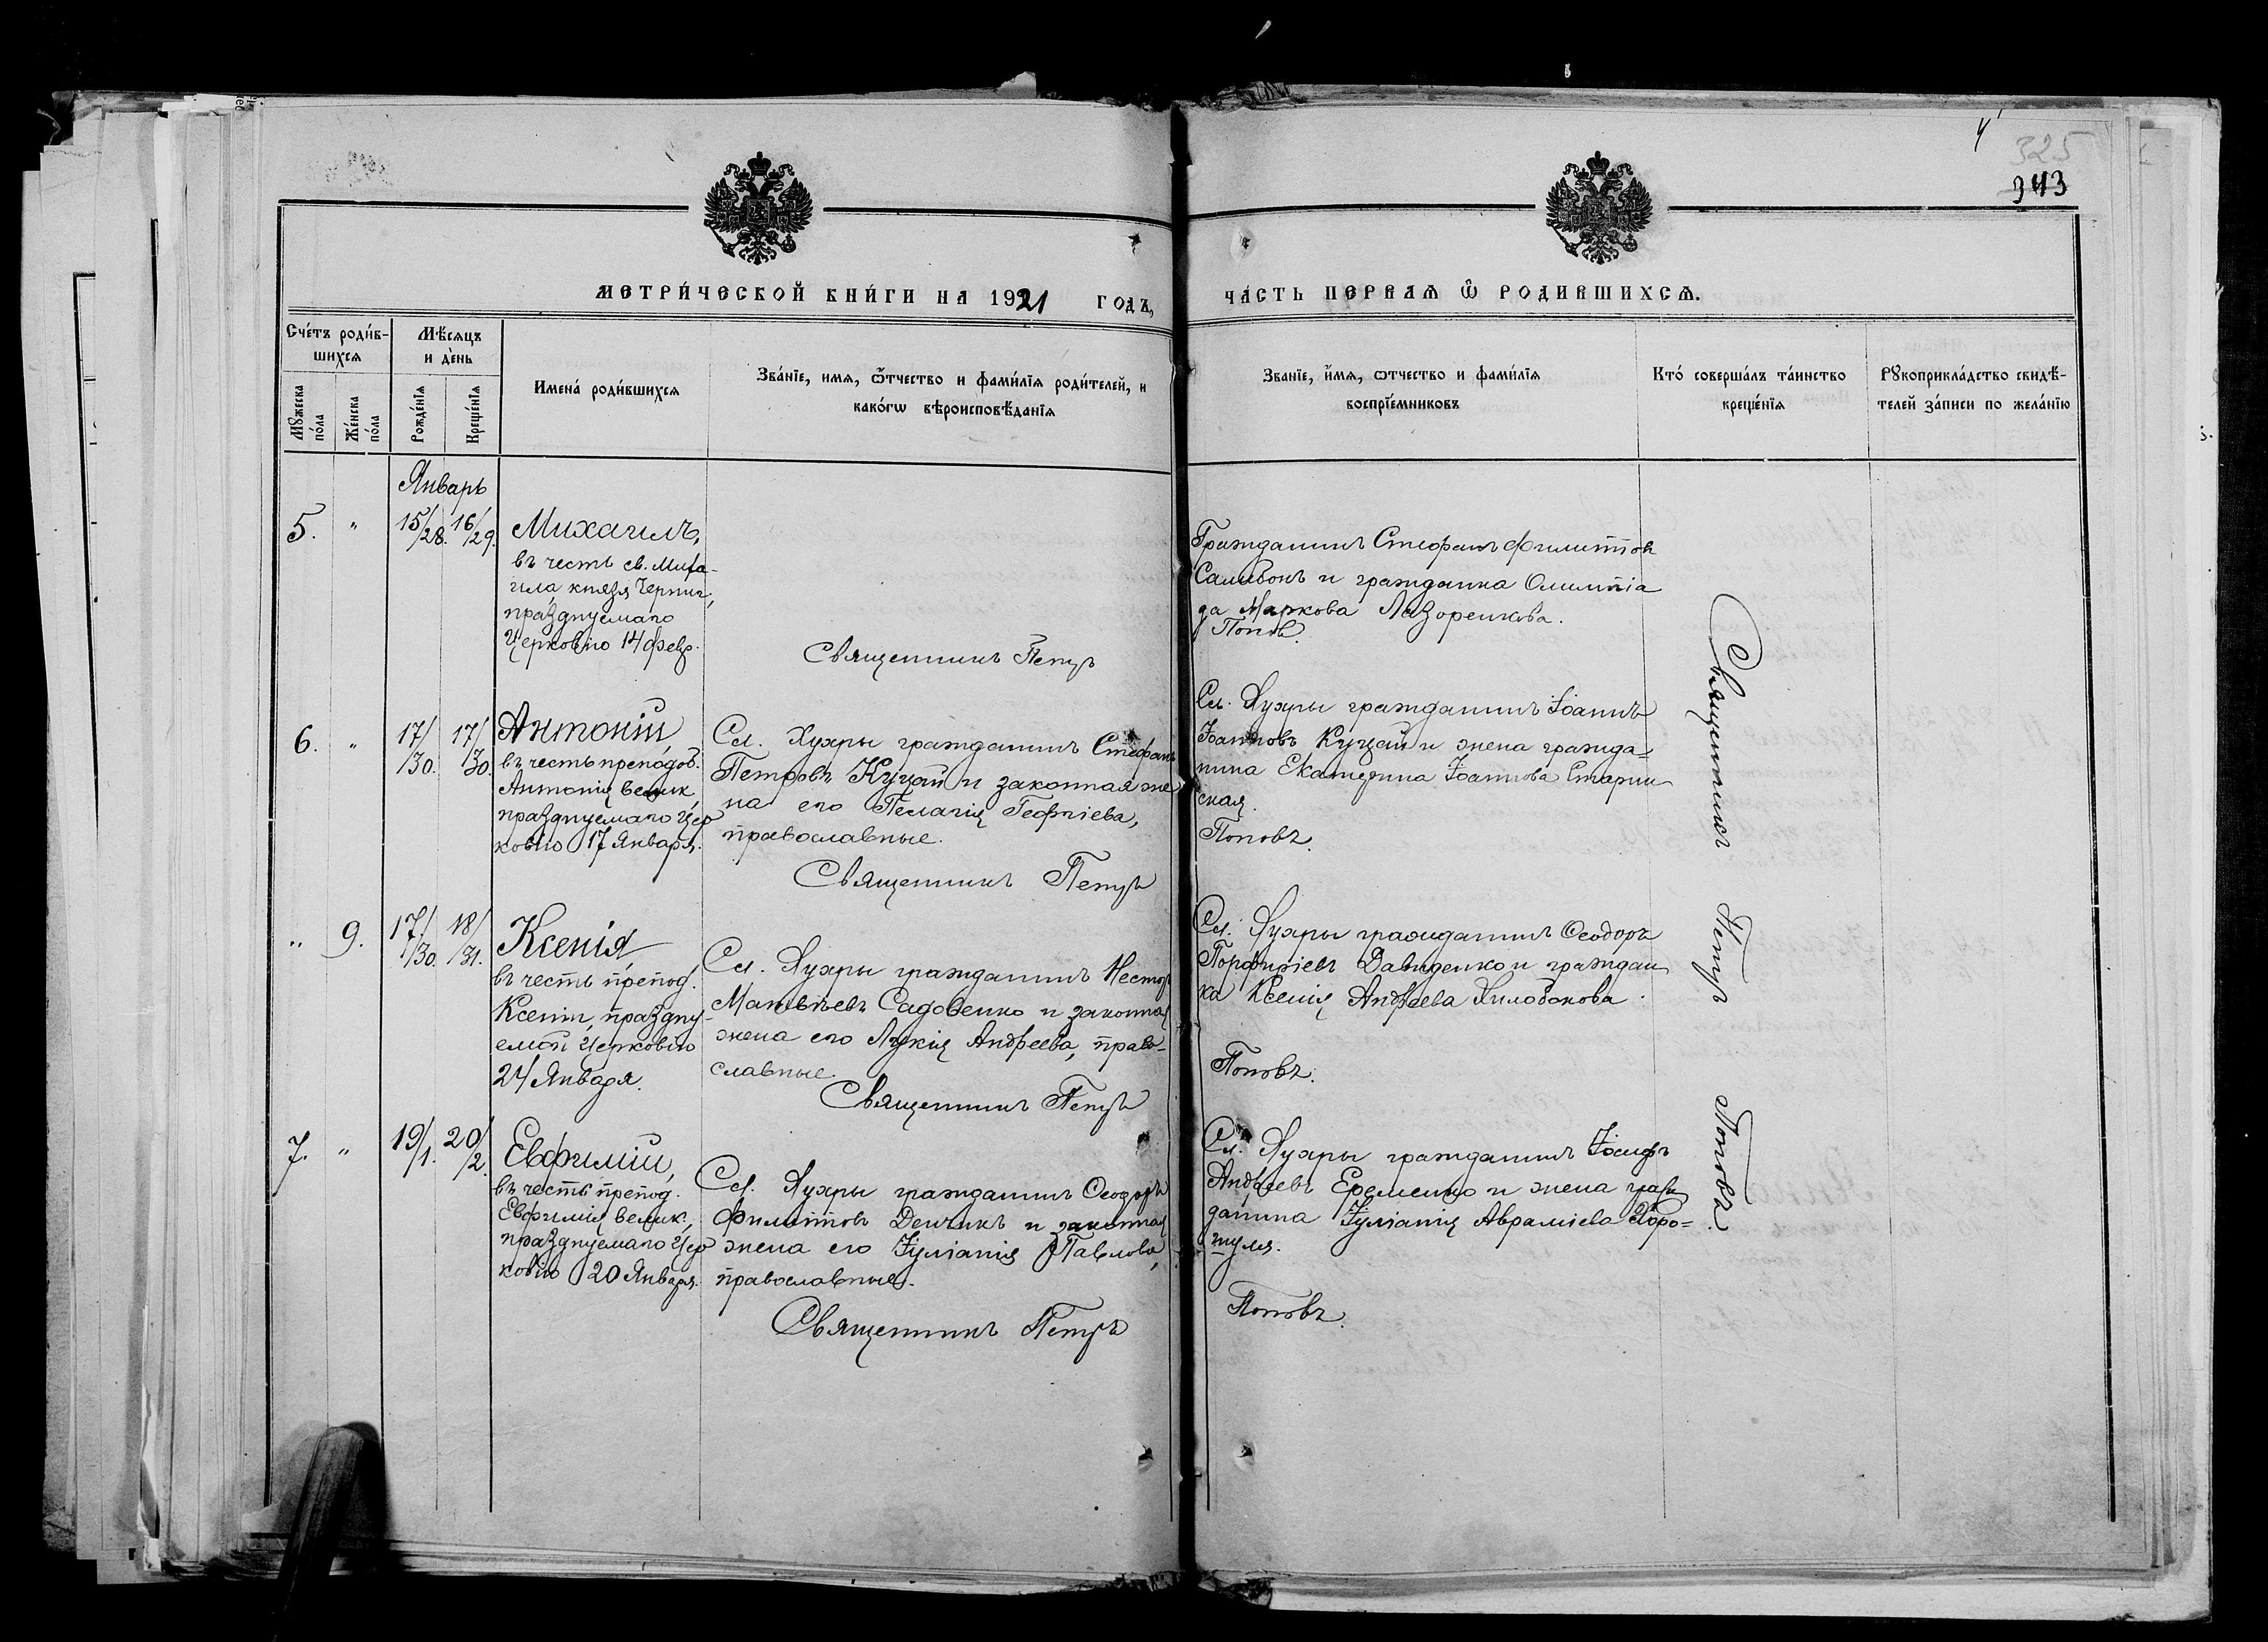 325
343
МЕТРИ́ЧЕСКОЙ КНИ́ГИ НА 1921 ГОДЪ,
ЧА́СТЬ ПЕРВАѦ Ѿ РОДИВШИХСѦ.
Сче́тъ роди́в-
шихсѧ
Мѣ́сѧцъ
и де́нь
Мꙋ́жеска
по́ла
Же́нска
по́ла
Рожде́нїѧ
Креще́нїѧ
Имена́ роди́вшихсѧ
Зва́нїе, имѧ, ѻ҆́тчество и фами́лїѧ роди́телей, и
како́гѡ вѣроисповѣ́данїѧ
Зва́нїе, и҆́мѧ, ѻтчество и фами́лїѧ
воспрїе́мниковъ
Кто́ соверша́лъ та́инство
креще́нїѧ
Рꙋкоприкла́дство свидѣ́-
телей за́писи по жела́нїю
Январь
5. " 15/28. 16/29.
Михаилъ,
въ честь св. Миха-
ила, князя Черниг.,
празднуемаго
Церковію 14 февр.
Священникъ Петръ
Гражданинъ Стефанъ Филиппов
и гражданка Олимпіа
да Маркова Лазоренкова.
Попов.
6. " 17/30. 17/30.
Антоній,
въ честь преподоб.
Антонія велик.,
празднуемаго Цер
ковію 17 Января.
Сл. Хухры гражданинъ Стефанъ
Петровъ Куцай и законная же
на его Пелагія Георгіева,
православные.
Священникъ Петръ
Сл. Хухры гражданинъ Іоаннъ
Іоанновъ Куцай и жена гражда-
нина Екатерина Іоаннова Старин
ская.
Поповъ.
" 9. 17/30. 18/31.
Ксенія,
въ честь препод.
Ксеніи, праздну-
емой Церковію
24 Января.
Сл. Хухры гражданинъ Несторъ
Матвѣевъ Садовенко и законная
жена его Лукія Андреева, право-
славные.
Священникъ Петръ
Сл. Хухры гражданинъ Ѳеодоръ
Порфиріевъ Давиденко и граждан
ка Ксенія Андреева Хилобокова.
Поповъ.
7. " 19/1. 20/2.
Евфимій,
въ честь препод.
Евфимія велик.,
празднуемаго Цер
ковію 20 Января.
Сл. Хухры гражданинъ Ѳеодоръ
Филипповъ Денчикъ и законная
жена его Іуліанія Павлова,
православные.
Священникъ Петръ
Сл. Хухры гражданинъ Іосифъ
Андреевъ Еременко и жена граж
данина Іуліанія Авраміева Хоро=
шуля.
Поповъ.
Священникъ Петръ Поповъ.